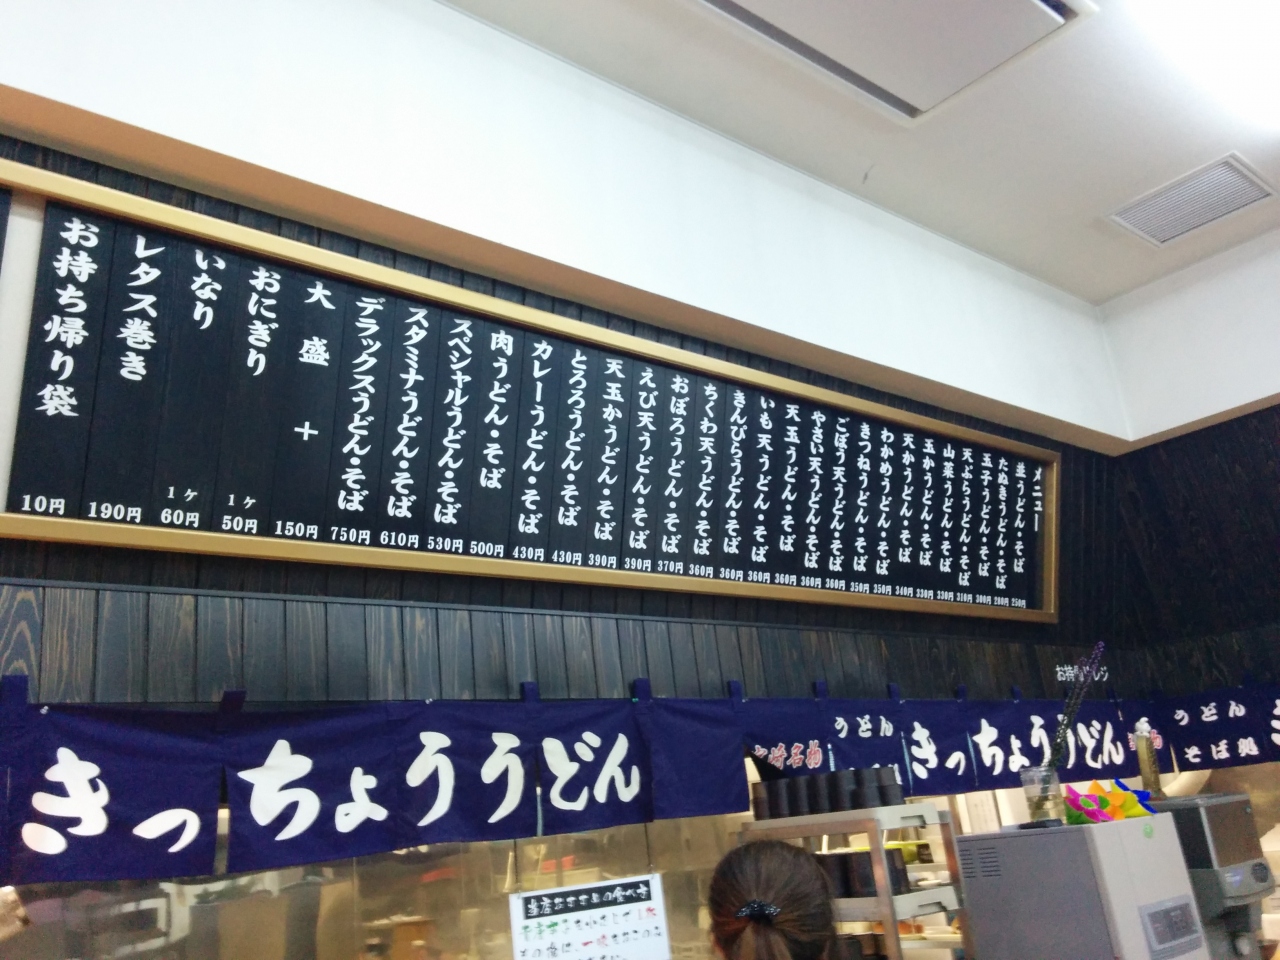 メニュー
並うどん・そば 250円
たぬきうどん・そば 280円
玉子うどん・そば 300円
天ぷらうどん・そば 310円
山菜うどん・そば 330円
玉かうどん・そば 330円
天かうどん・そば 340円
わかめうどん・そば 350円
きつねうどん・そば 350円
ごぼう天うどん・そば 360円
やさい天うどん・そば 360円
天玉うどん・そば 360円
いも天うどん・そば 360円
きんぴらうどん・そば 360円
ちくわ天うどん・そば 360円
おぼろうどん・そば 370円
えび天うどん・そば 390円
天玉かうどん・そば 390円
とろろうどん・そば 430円
カレーうどん・そば 430円
肉うどん・そば 500円
スペシャルうどん・そば 530円
スタミナうどん・そば 610円
デラックスうどん・そば 750円
大盛+ 150円
おにぎり 1ケ 50円
いなり 1ケ 60円
レタス巻き 190円
お持ち帰り袋 10円
きっちょううどん
名物
うどん
きっちょううどん
うどん
そば処
当店おすすめの食べ方